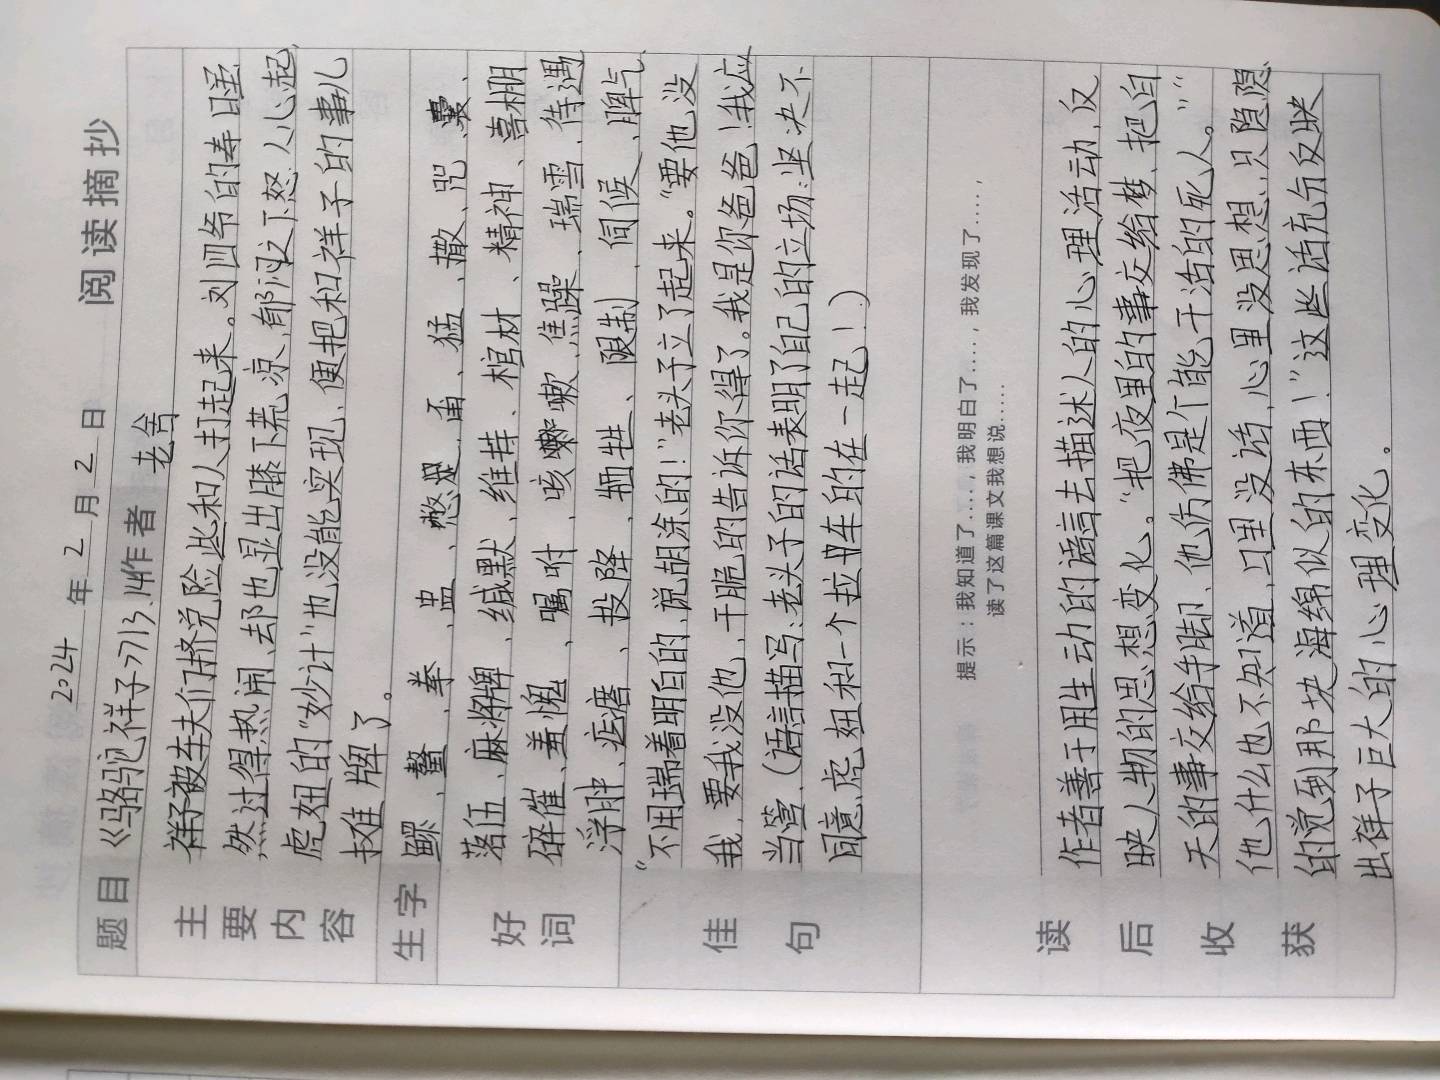 2024年2月2日 阅读摘抄
题目 《骆驼祥子》13、14 作者 老舍
主要内容
祥子被车夫们挤兑险些和人打起来。刘四爷的寿日虽
然过得热闹,却也显出膝下荒凉,郁闷之下怒人心起,
虎妞的“妙计”也没能实现、便把和祥子的事儿
摊牌了。
生字
鳏、鳌、拳、盅、憋、甭、猛、撒、咒、
好词
落伍、麻将牌、缄默、维持、棺材、精神、喜棚
碎催、羞愧、嘱咐、咳嗽、焦躁、瑞雪、待遇
浮肿、疙瘩、投降、牺牲、限制、伺候、脾气
佳句
“不用瑞着明白的,说胡涂的!”老头子立了起来。“要他没
我,要我没他,干脆的告诉你得了。我是你爸爸!我应
当管、(语言描写:老头子的话表明了自己的立场:坚决不
同意虎妞和一个拉车的在一起!)
提示:我知道了....,我明白了....,我发现了....,
读了这篇课文我想说......
读后收获
作者善于用生动的语言去描述人的心理活动,反
映人物的思想变化。“把夜里的事交给梦,把白
天的事交给手脚、他仿佛是个能干活的死人。”“
他什么也不知道,口里没话,心里没思想,只隐隐
的觉到那块海绵似的东西!”这些话充分反映
出祥子巨大的心理变化。